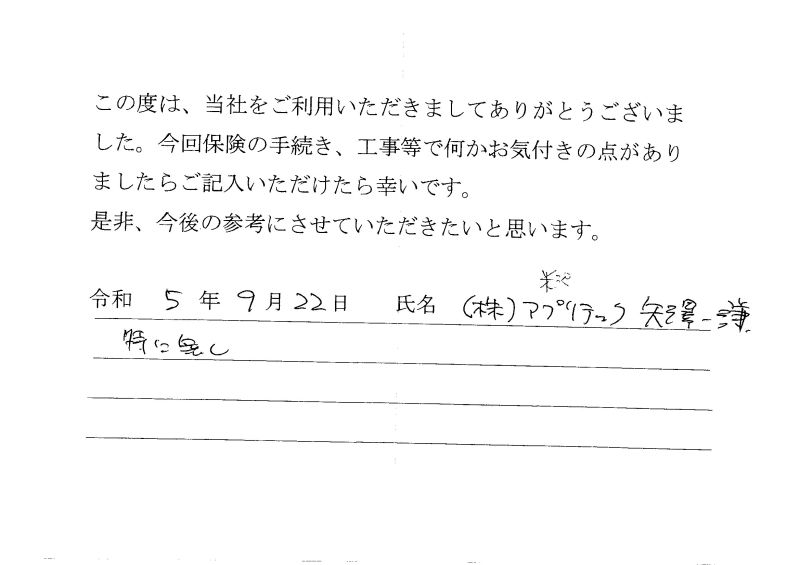 この度は、当社をご利用いただきましてありがとうございま
した。今回保険の手続き、工事等で何かお気付きの点があり
ましたらご記入いただけたら幸いです。
是非、今後の参考にさせていただきたいと思います。
令和 5 年 9 月 22 日 氏名 (株)アプリテック 矢澤一謙
特に無し